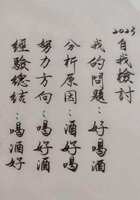 2023
自我檢討
我的問題：好喝酒
分析原因：酒好喝
努力方向：喝好酒
經驗總結：喝酒好